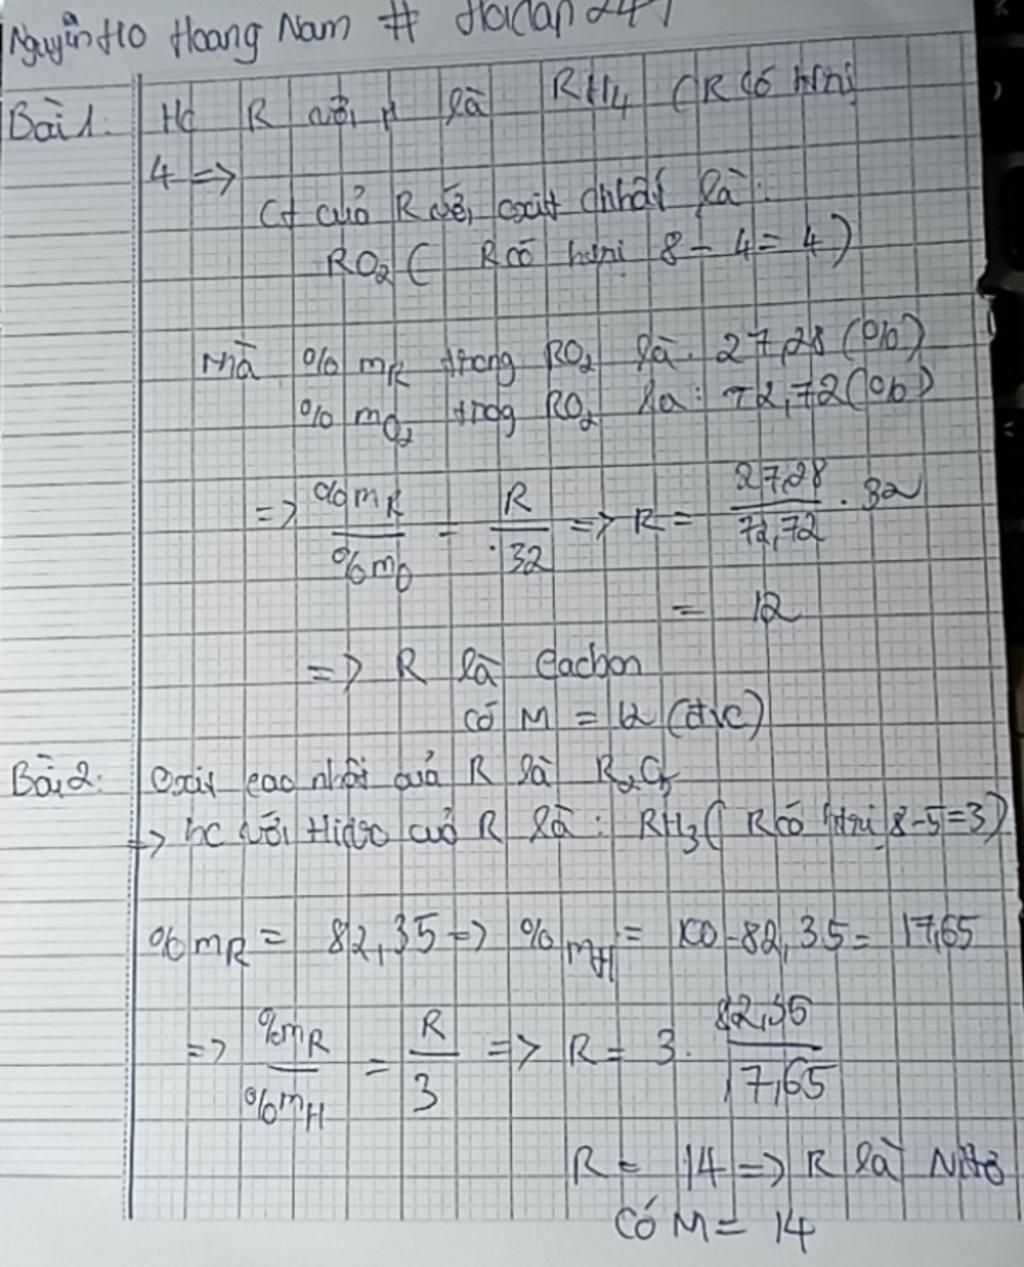 Nguyễn Hồ Hoang Nam # Hoidap247
Bài 1: Hc R với H là RH4 (R có htrị
4 =>
Ct của R với oxit nhất là:
RO2 ( R có htrị 8 - 4 = 4)
Mà % mR trong RO2 là: 27,28 (%)
% mO2 trog RO2 la: 72,72 (%)
=> %mR / %mO = R / 32 => R = 27,28 / 72,72 . 32
= 12
=> R là Cacbon
có M = 12 (đvc)
Bài 2: Oxit cao nhất của R là R2O5
-> hc với Hidro của R là: RH3 ( R có htrị 8-5=3)
%mR = 82,35 => %mH = 100-82,35 = 17,65
=> %mR / %mH = R / 3 => R = 3. 82,35 / 17,65
R = 14 => R là Nitơ
có M = 14